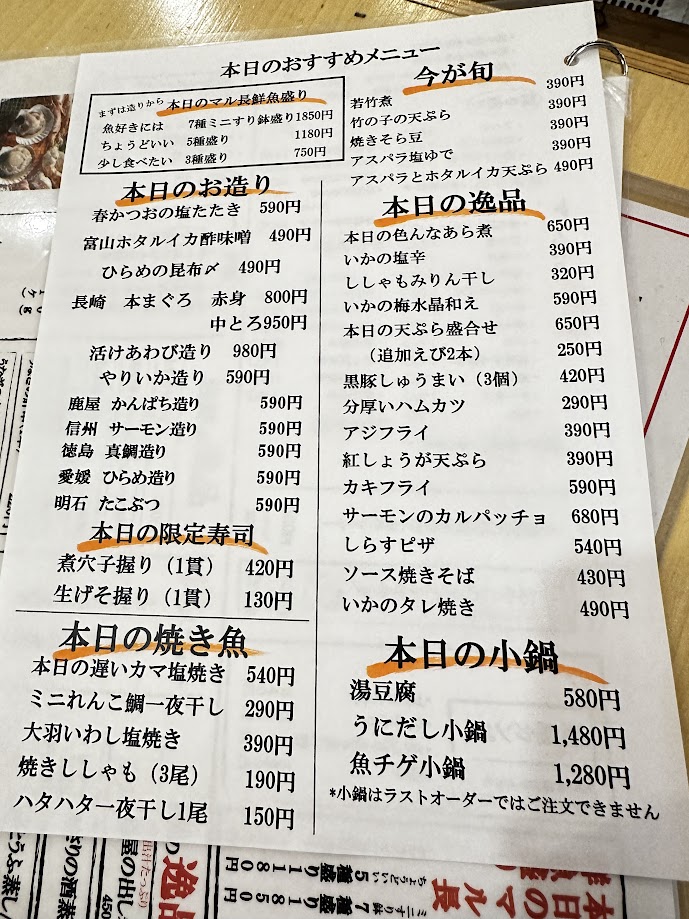 本日のおすすめメニュー
まずは造りから 本日のマル長鮮魚盛り
魚好きには 7種ミニすり鉢盛り1850円
ちょうどいい 5種盛り 1180円
少し食べたい 3種盛り 750円
本日のお造り
春かつおの塩たたき 590円
富山ホタルイカ酢味噌 490円
ひらめの昆布〆 490円
長崎 本まぐろ 赤身 800円
中とろ950円
活けあわび造り 980円
やりいか造り 590円
鹿屋 かんぱち造り 590円
信州 サーモン造り 590円
徳島 真鯛造り 590円
愛媛 ひらめ造り 590円
明石 たこぶつ 590円
本日の限定寿司
煮穴子握り（1貫） 420円
生げそ握り（1貫） 130円
本日の焼き魚
本日の遅いカマ塩焼き 540円
ミニれんこ鯛一夜干し 290円
大羽いわし塩焼き 390円
焼きししゃも（3尾） 190円
ハタハタ一夜干し1尾 150円
今が旬
若竹煮 390円
竹の子の天ぷら 390円
焼きそら豆 390円
アスパラ塩ゆで 390円
アスパラとホタルイカ天ぷら 490円
本日の逸品
本日の色んなあら煮 650円
いかの塩辛 390円
ししゃもみりん干し 320円
いかの梅水晶和え 590円
本日の天ぷら盛合せ 650円
（追加えび2本） 250円
黒豚しゅうまい（3個） 420円
分厚いハムカツ 290円
アジフライ 390円
紅しょうが天ぷら 390円
カキフライ 590円
サーモンのカルパッチョ 680円
しらすピザ 540円
ソース焼きそば 430円
いかのタレ焼き 490円
本日の小鍋
湯豆腐 580円
うにだし小鍋 1,480円
魚チゲ小鍋 1,280円
*小鍋はラストオーダーではご注文できません
本日のマル長
ミニすり鉢 7種盛り 1850円
ちょうどいい 5種盛り 1180円